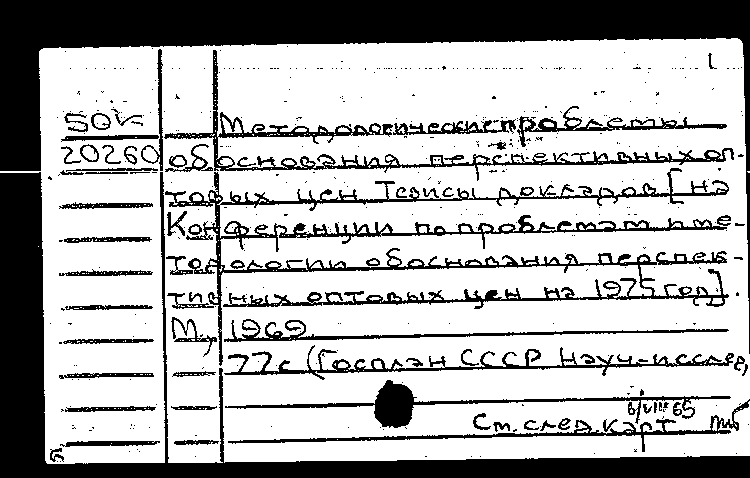 1
50к Методологические проблемы
20260 обоснования перспективных оп-
товых цен Тезисы докладов [на
Конференции по проблемам и ме-
тодологии обоснования перспек-
тивных оптовых цен на 1975 год].
М., 1969.
77с (Госплан СССР Науч-исслед,
6/VIII 65
См. след. карт
Б